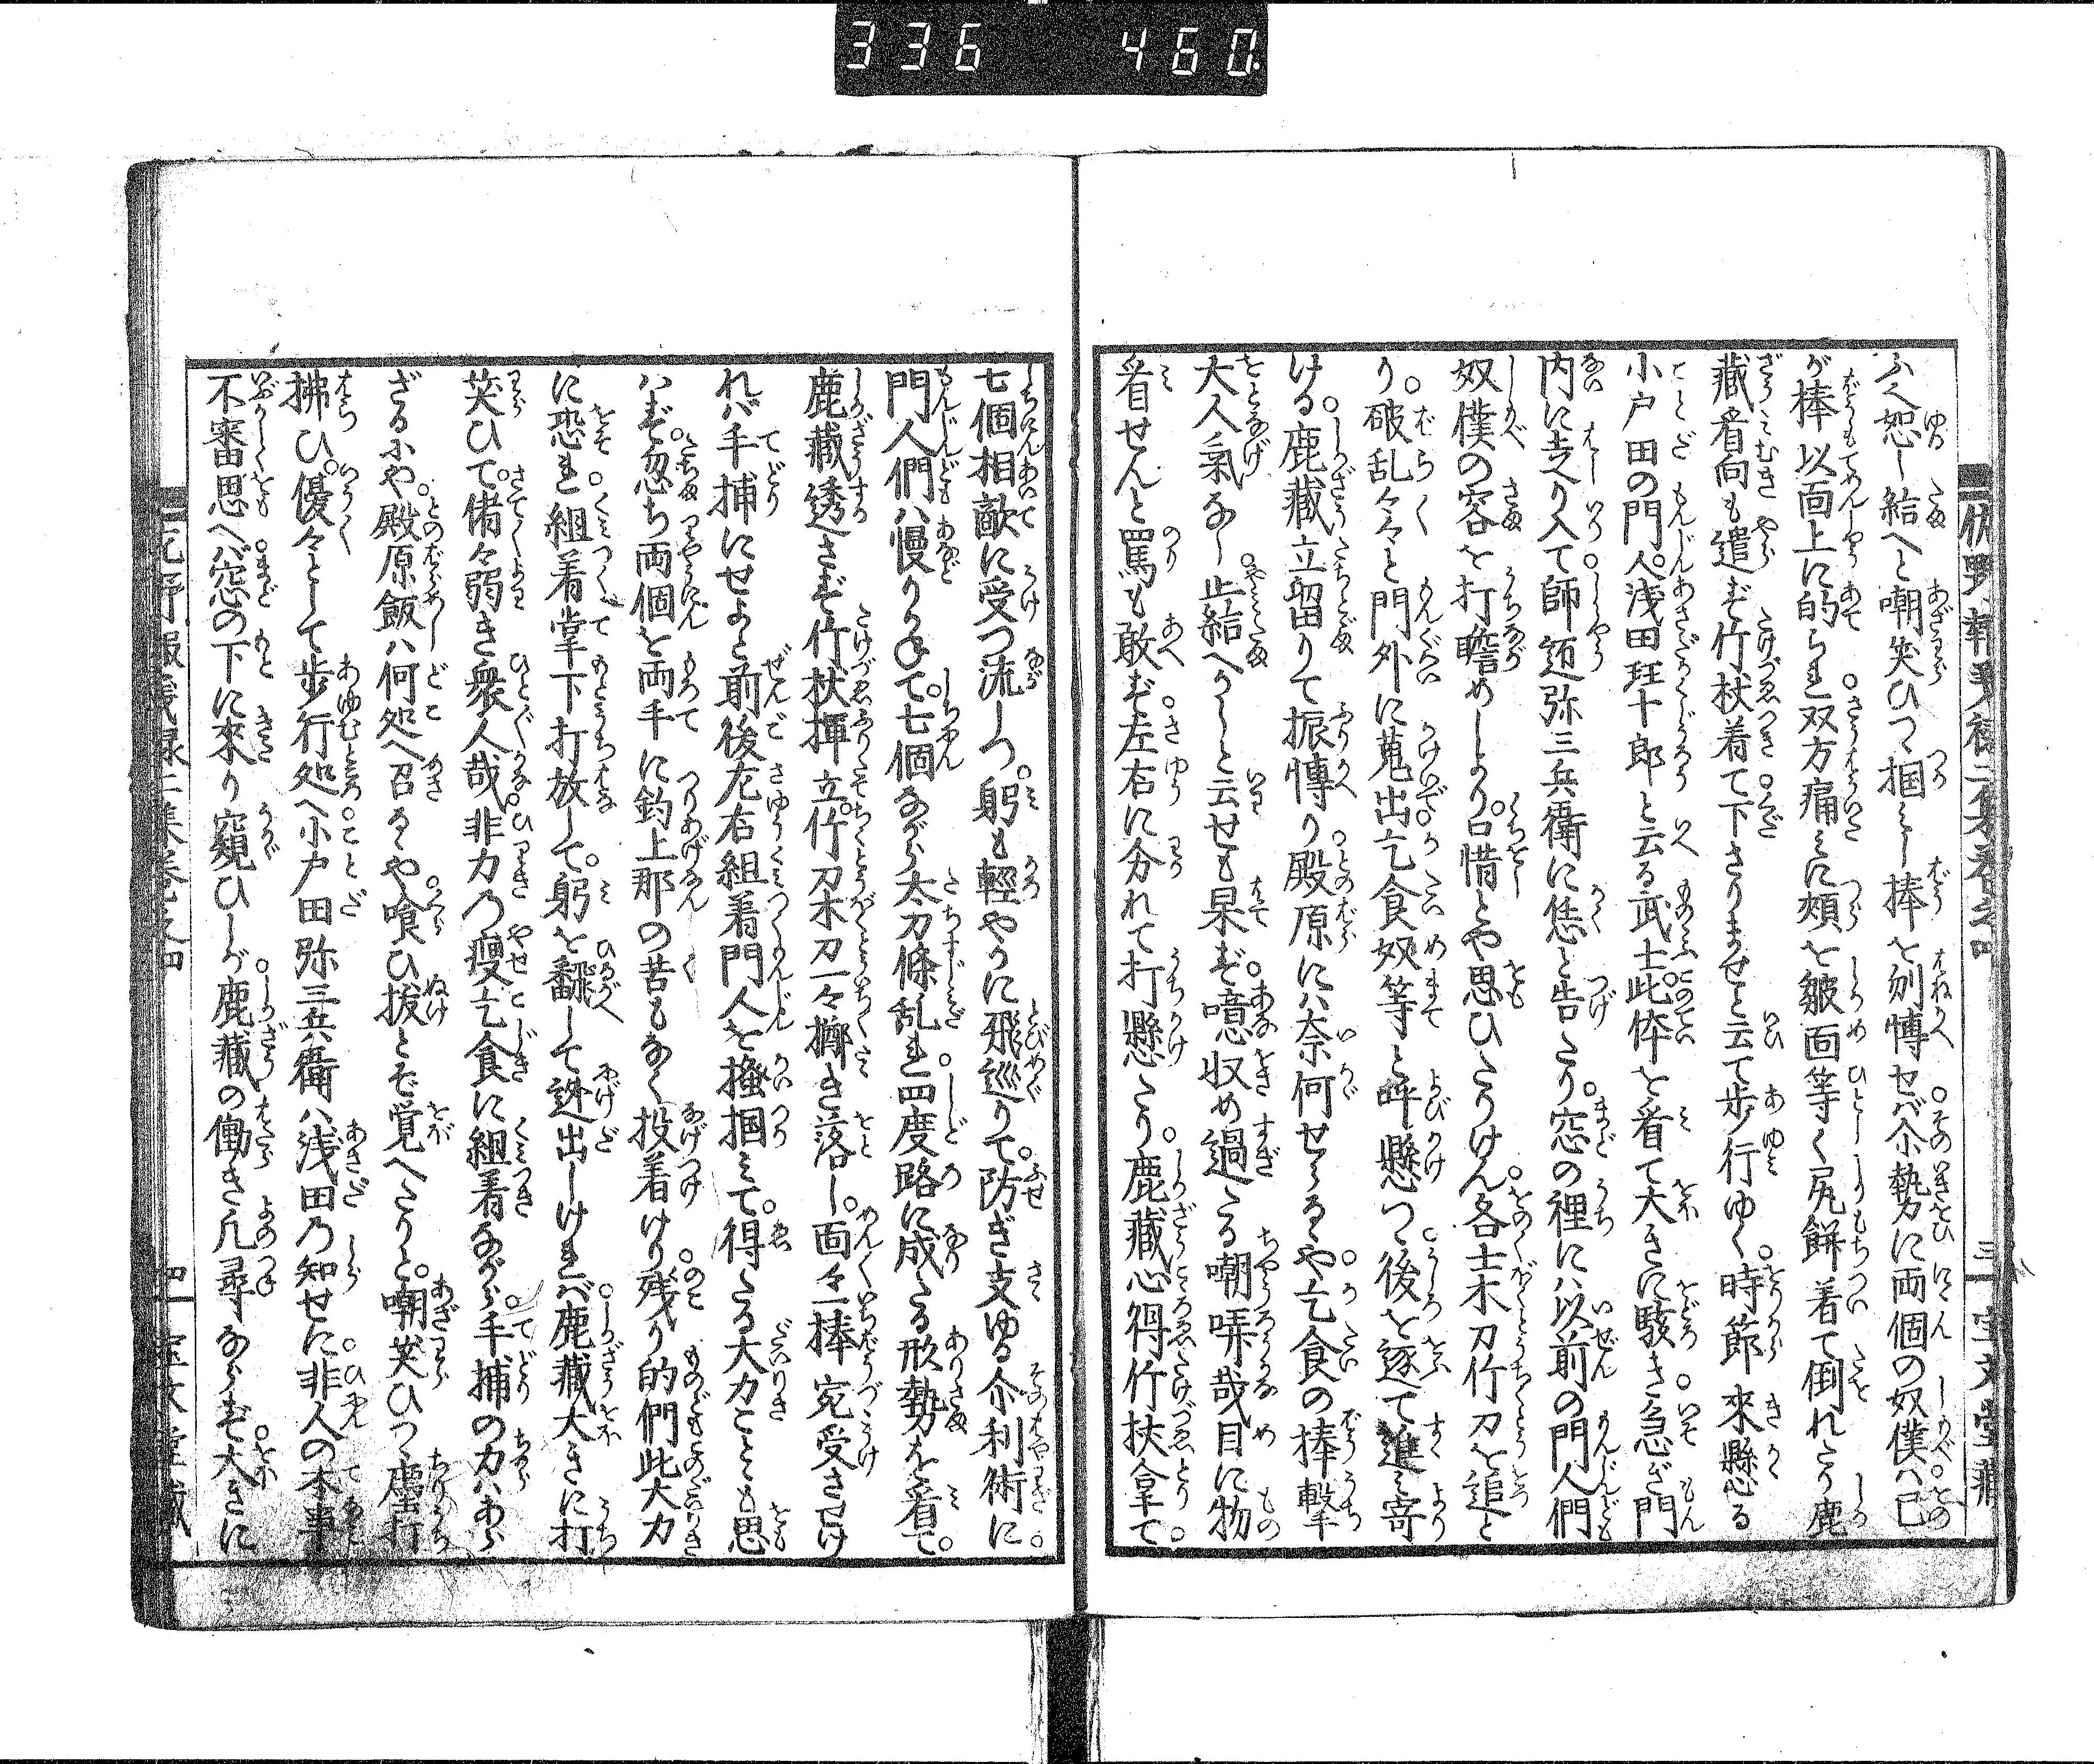 336 460
ふく恕し給へと嘲笑ひつ掴みし棒を刎慱せバ尒勢に両個の奴僕ハ已
が棒以面上に的られ双方痛みに頬を皺面等く尻餅着て倒れたり鹿
藏看向も遣ず竹杖着て下さりませと云て歩行ゆく時節來懸る
小戸田の門人浅田珏十郎と云る武士此体を看て大きに駭き急ぎ門
内に走り入て師匠弥三兵衛に恁と告たり窓の裡にハ以前の門人們
奴僕の容を打瞻めしより口惜とや思ひたりけん各士木刀竹刀を追と
り破乱々々と門外に蒐出乞食奴等と呼懸つ後を逐て進み寄
ける鹿藏立留りて振慱り殿原にハ奈何せらるや乞食の棒撃
大人氣なし止給へかしと云せも果ず噫収め過たる嘲哢哉目に物
看せんと罵も敢ず左右に分れて打懸たり鹿藏心得竹扶拿て
七個相敵に受つ流しつ躬も軽やかに飛巡りて防ぎ支ゆる尒利術に
門人們ハ慢りかねて七個ながら太刀條乱れ四度路に成たる形勢を看て
鹿藏透さず竹杖揮立竹刀木刀一々擲き落し面々一棒宛受させけ
れバ手捕にせよと前後左右組着門人を搔掴みて得たる大力ことも思
ハず忽ち両個を両手に釣上那の苦もなく投着けり残り的們此大力
に恐れ組着掌下打放して躬を飜して迯出しけれバ鹿藏大きに打
笑ひて偖々弱き衆人哉非力乃痩乞食に組着ながら手捕の力ハあら
ざるにや殿原飯ハ何処へ召るや喰ひ抜とぞ覚へたりと嘲笑ひつ塵打
拂ひ優々として歩行処へ小戸田弥三兵衛ハ浅田乃知せに非人の本事
不審思へバ窓の下に來り窺ひしが鹿藏の働き凡尋ならず大きに
三 宝文堂藏
四 宝文堂藏